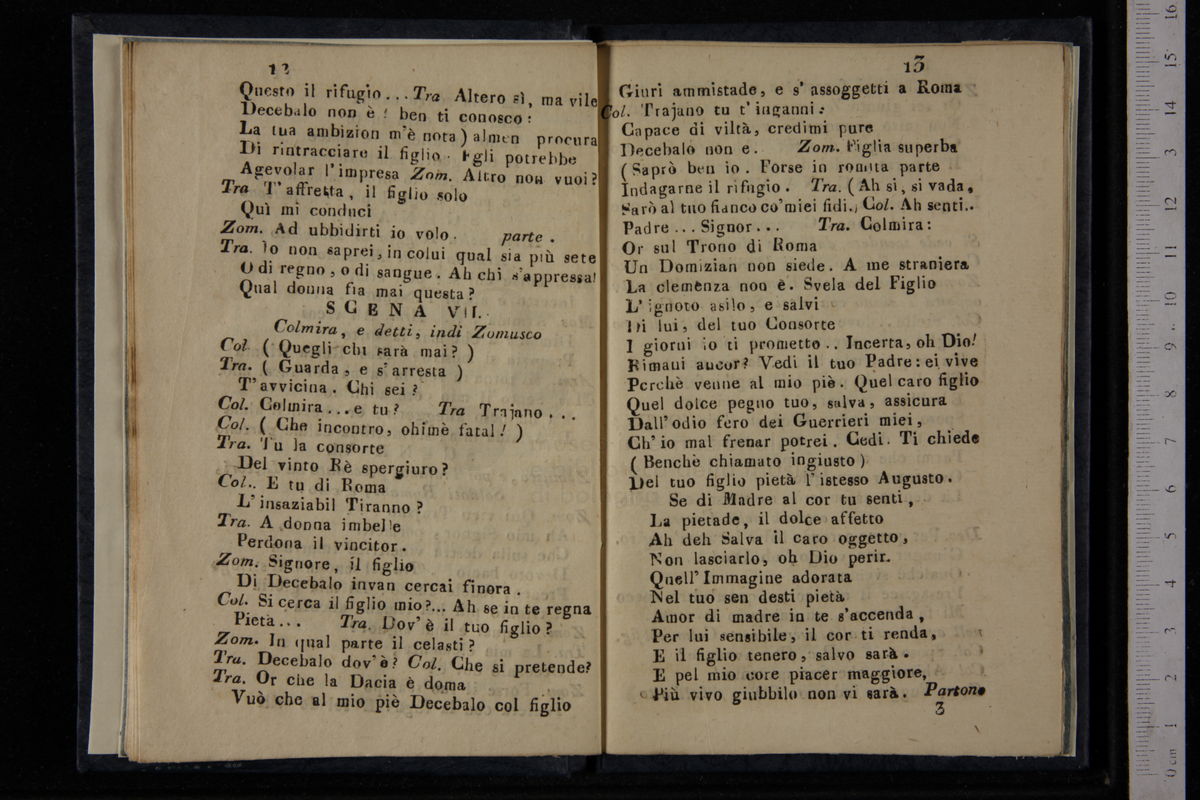 12
Questo il rifugio... Tra Altero sì, ma vile
Decebalo non è! ben ti conosco:
La tua ambizion m'è nota) almen procura
Di rintracciare il figlio. Egli potrebbe
Agevolar l'impresa Zom. Altro non vuoi?
Tra T'affretta, il figlio solo
Quì mi conduci
Zom. Ad ubbidirti io volo. parte.
Tra. Io non saprei, in colui qual sia più sete
O di regno, o di sangue. Ah chi s'appressa!
Qual donna fia mai questa?
SCENA VII.
Colmira, e detti, indi Zomusco
Col (Quegli chi sarà mai?)
Tra. (Guarda, e s'arresta)
T'avvicina. Chi sei?
Col. Colmira...e tu? Tra Trajano...
Col. (Che incontro, ohimè fatal!)
Tra. Tu la consorte
Del vinto Rè spergiuro?
Col.. E tu di Roma
L'insaziabil Tiranno?
Tra. A donna imbelle
Perdona il vincitor.
Zom. Signore, il figlio
Di Decebalo invan cercai finora.
Col. Si cerca il figlio mio?... Ah se in te regna
Pietà... Tra. Dov'è il tuo figlio?
Zom. In qual parte il celasti?
Tra. Decebalo dov'è? Col. Che si pretende?
Tra. Or che la Dacia è doma
Vuò che al mio piè Decebalo col figlio
13
Giuri ammistade, e s'assoggetti a Roma
Col. Trajano tu t'inganni:
Capace di viltà, credimi pure
Decebalo non e. Zom. Figlia superba
(Saprò ben io. Forse in romita parte
Indagarne il rifugio. Tra. (Ah si, si vada,
Sarò al tuo fianco co'miei fidi.) Col. Ah senti..
Padre... Signor... Tra. Colmira:
Or sul Trono di Roma
Un Domizian non siede. A me straniera
La clemenza non è. Svela del Figlio
L'ignoto asilo, e salvi
Di lui, del tuo Consorte
I giorni io ti prometto.. Incerta, oh Dio!
Rimani ancor? Vedi il tuo Padre: ei vive
Perchè venne al mio piè. Quel caro figlio
Quel dolce pegno tuo, salva, assicura
Dall'odio fero dei Guerrieri miei,
Ch'io mal frenar potrei. Cedi. Ti chiede
(Benchè chiamato ingiusto)
Del tuo figlio pietà l'istesso Augusto.
Se di Madre al cor tu senti,
La pietade, il dolce affetto
Ah deh Salva il caro oggetto,
Non lasciarlo, oh Dio perir.
Quell'Immagine adorata
Nel tuo sen desti pietà
Amor di madre in te s'accenda,
Per lui sensibile, il cor ti renda,
E il figlio tenero, salvo sarà.
E pel mio core piacer maggiore,
Più vivo giubbilo non vi sarà. Partono
3
0 cm 1 2 3 4 5 6 7 8 9 10 11 12 3 14 15 16